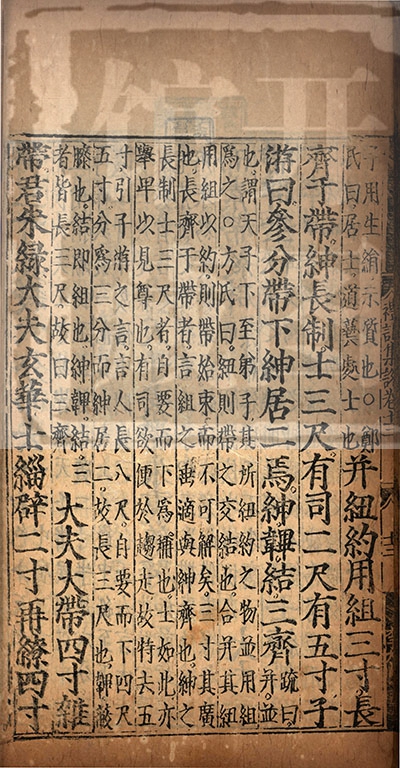 子用生繒示質也○鄭
氏曰居士道藝處士也
并紐約用組三寸長
齊于帶紳長制士三尺有司二尺有五寸子
游曰參分帶下紳居二焉紳韠結三齊
疏曰
并並
也謂天子下至弟子其所紐約之物並用組
爲之○方氏曰紐則帶之交結也合并其紐
用組以約則帶始束而不可解矣三寸其廣
也長齊于帶者言組之垂適與紳齊也紳之
長制士三尺者自要而下爲稱也士如此亦
舉卑以見尊也有司欲便於趨走故特去五
寸引子游之言言人長八尺自要而下四尺
五寸分爲三分而紳居二故長三尺也韠蔽
膝也結即組也紳韠結三
者皆長三尺故曰三齊
大夫大帶四寸雜
帶君朱綠大夫玄華士緇辟二寸再繚四寸